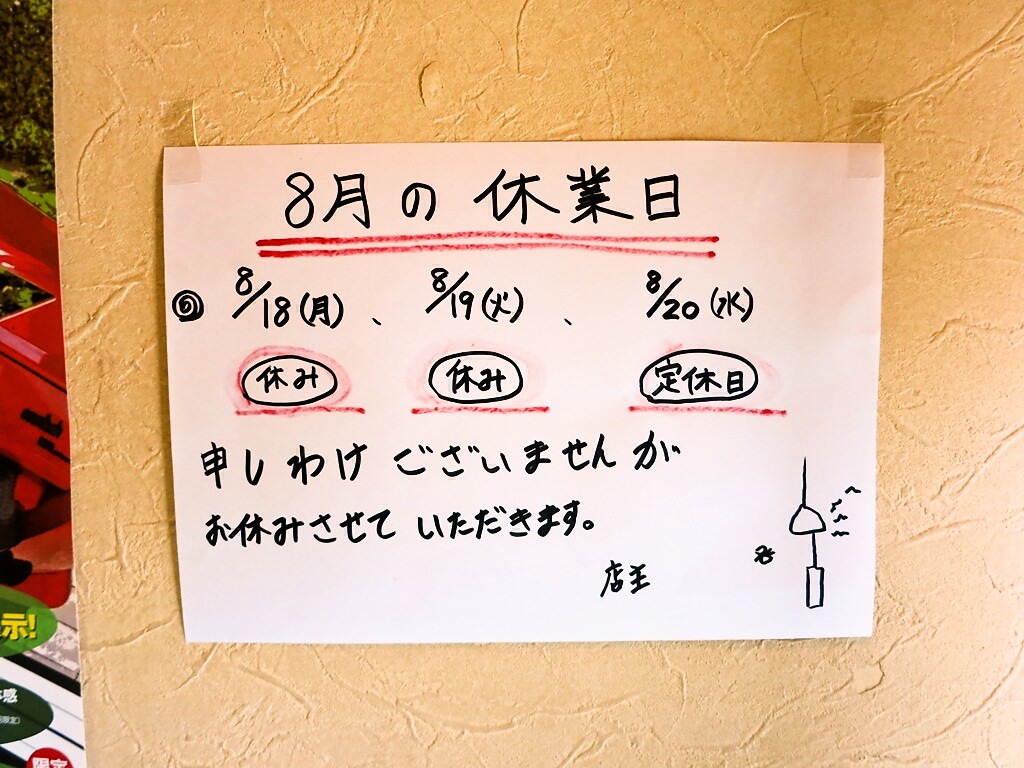 8月の休業日
◎ 8/18(月)、 8/19(火)、 8/20(水)
休み 休み 定休日
申しわけございませんが
お休みさせていただきます。
店主
示!
限定